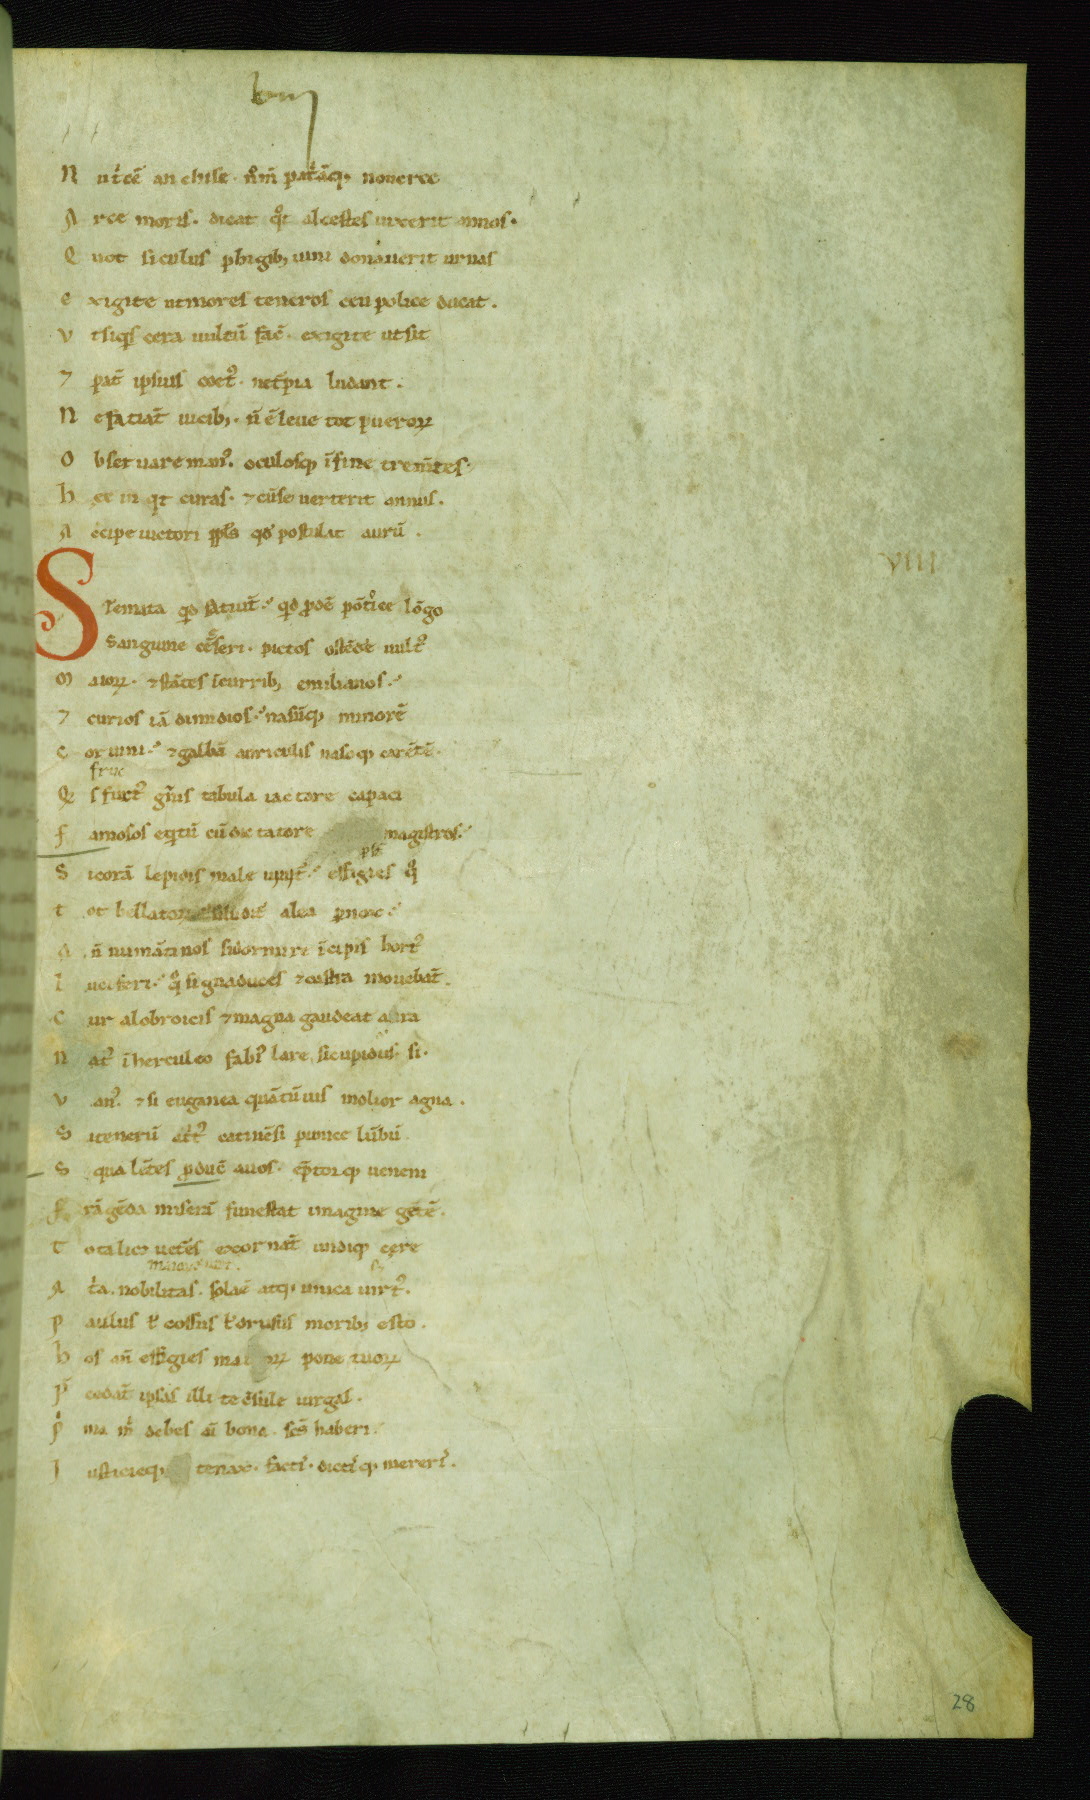 bm
N utcē anchise. nom̄ patāq; nouerce
A rce moris. dicat qͦt alcestes uixerit annos.
Q uot siculus phrigib; uini donauerit urnas
e xigite ut mores teneros ceu police ducat.
v t siqͥs cera uultū facͭ. exigite ut sit
⁊ pat̄ ipsius coet᷒. ne t̄pia ludant.
N e faciat̄ uicib;. n̄ ē leue tot pueroꝝ
O bseruare man᷒. oculosq; ī fine trem̄tes.
h ec in qͭt curas. ⁊ cū se uerterit annus.
A ccipe uictori ppl̄s qd̓ postulat aurū.
VIII
S temata qͥd faciūt. qͥd ꝓdē pōtice lōgo
Sanguine cēseri. pictos ostēdͤe uult᷒
m aioꝝ. ⁊ stātes ī currib; emilianos.
⁊ curios iā dimidios. nasūq; minorē
c oruini. ⁊ galbā auriculis nasoq; carētē.
fruc
Q s fuct᷒ gn̄is tabula iactare capaci
f amosos eqͥtū cū dictatore magistros.
S i corā lepidis male uiuit̄. effigies qͦ
t ot bellatoꝝ si ludit̄ alea ꝑnox
A n̄ numātinos si dormire īcipis hort᷒
l uciferi. qͦ signa duces ⁊ castra mouebāt.
C ur alobroicis ⁊ magna gaudeat ara
N at᷒ ī herculeo fabi᷒ lare. si cupidus. si.
v an᷒. ⁊ si euganea quātūuis molior agna.
S i tenerū att᷒ catinēsi pumice lūbū
S qualētes ꝓducͭ auos. ēptorq; ueneni
f rāgēda miserā funestat imagine gētē.
T ota licͭ uetēs exornāt undiq; cere
A tͥa. nobilitas. sola ē atq; unica uirt᷒.
p aulus ul̓ cossus ul̓ drusus moribus esto.
h os an̄ effigies maioꝝ pone tuoꝝ
p̄ cedāt ipsas illi te cͦsule uirgas.
pͥ ma m̓ debes aī bona. scs̄ haberi.
I usticieq; tenax. facti. dictisq; mereris.
28